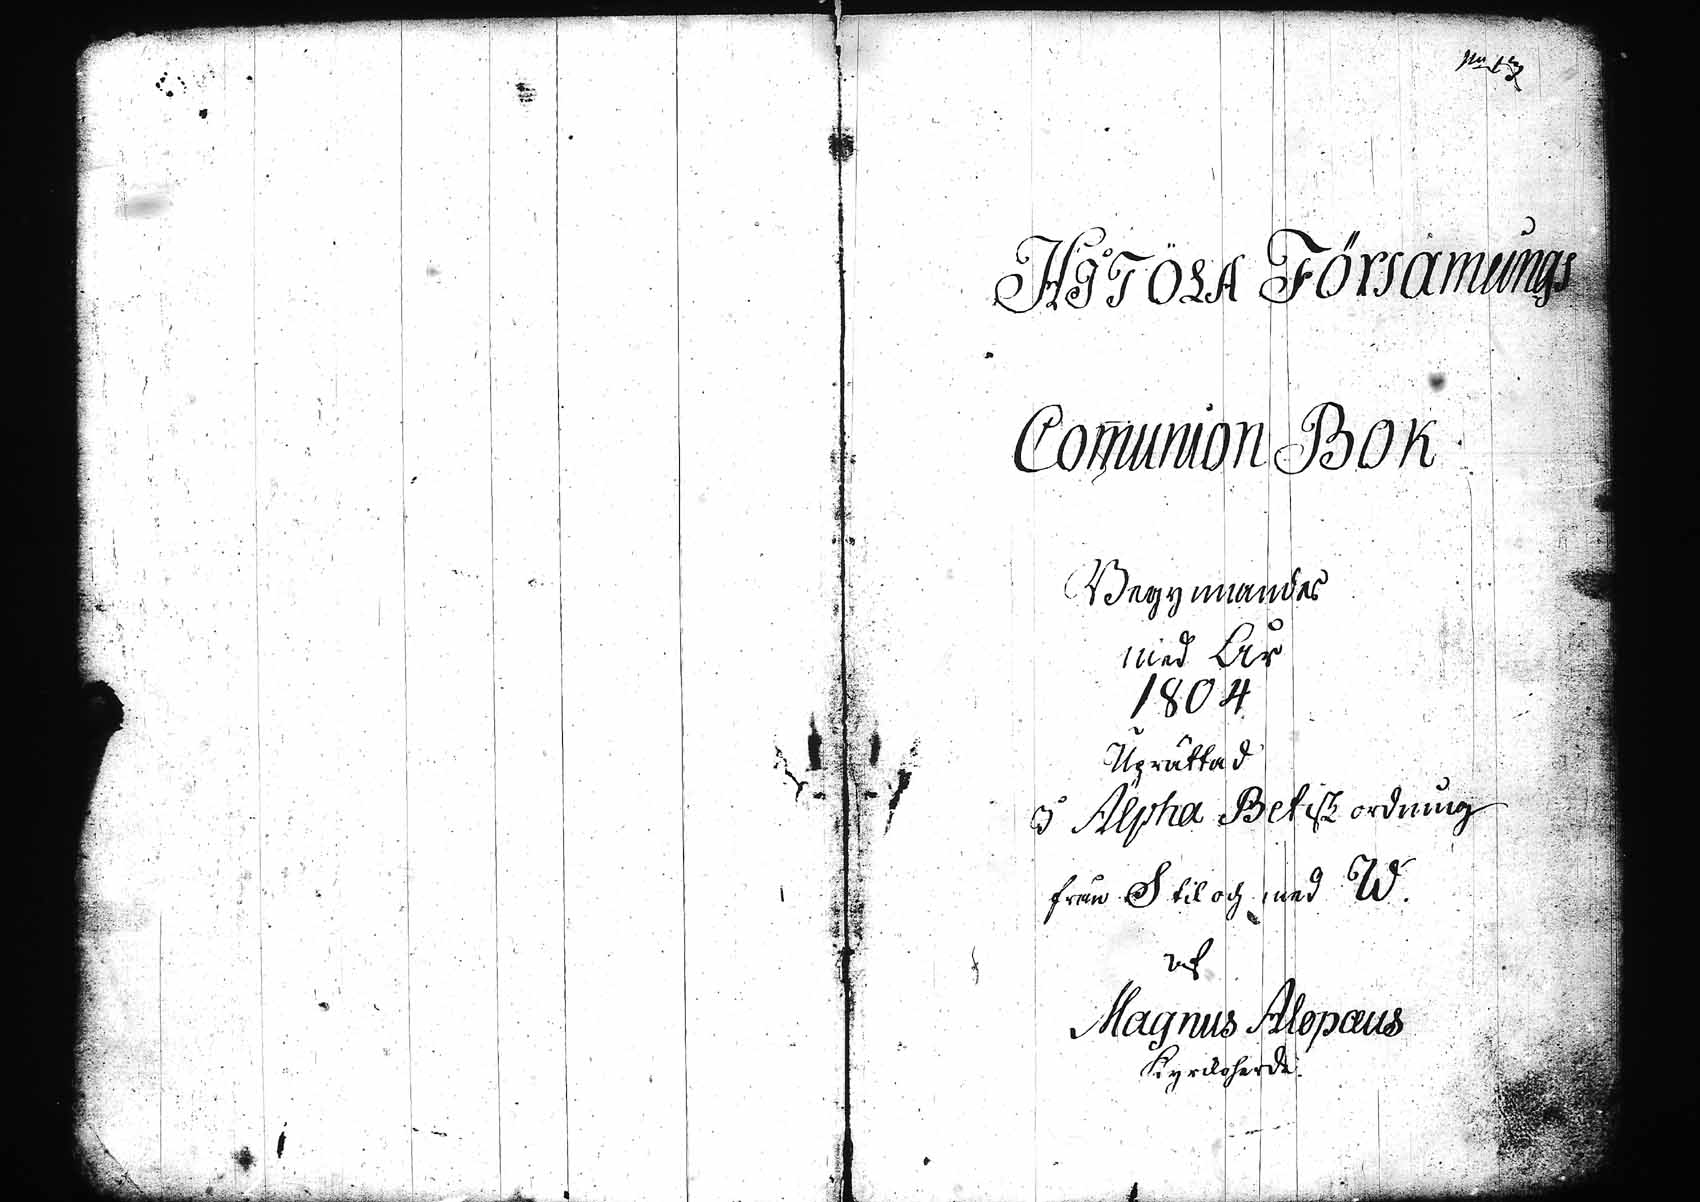 HiTÖLA Församlings
Com̄union Bok
Begynnandes
med År
1804
Uprättad
i Alpha Betisk ordning
från S til och med W.
af
Magnus Alopæus
Kyrckoherde.